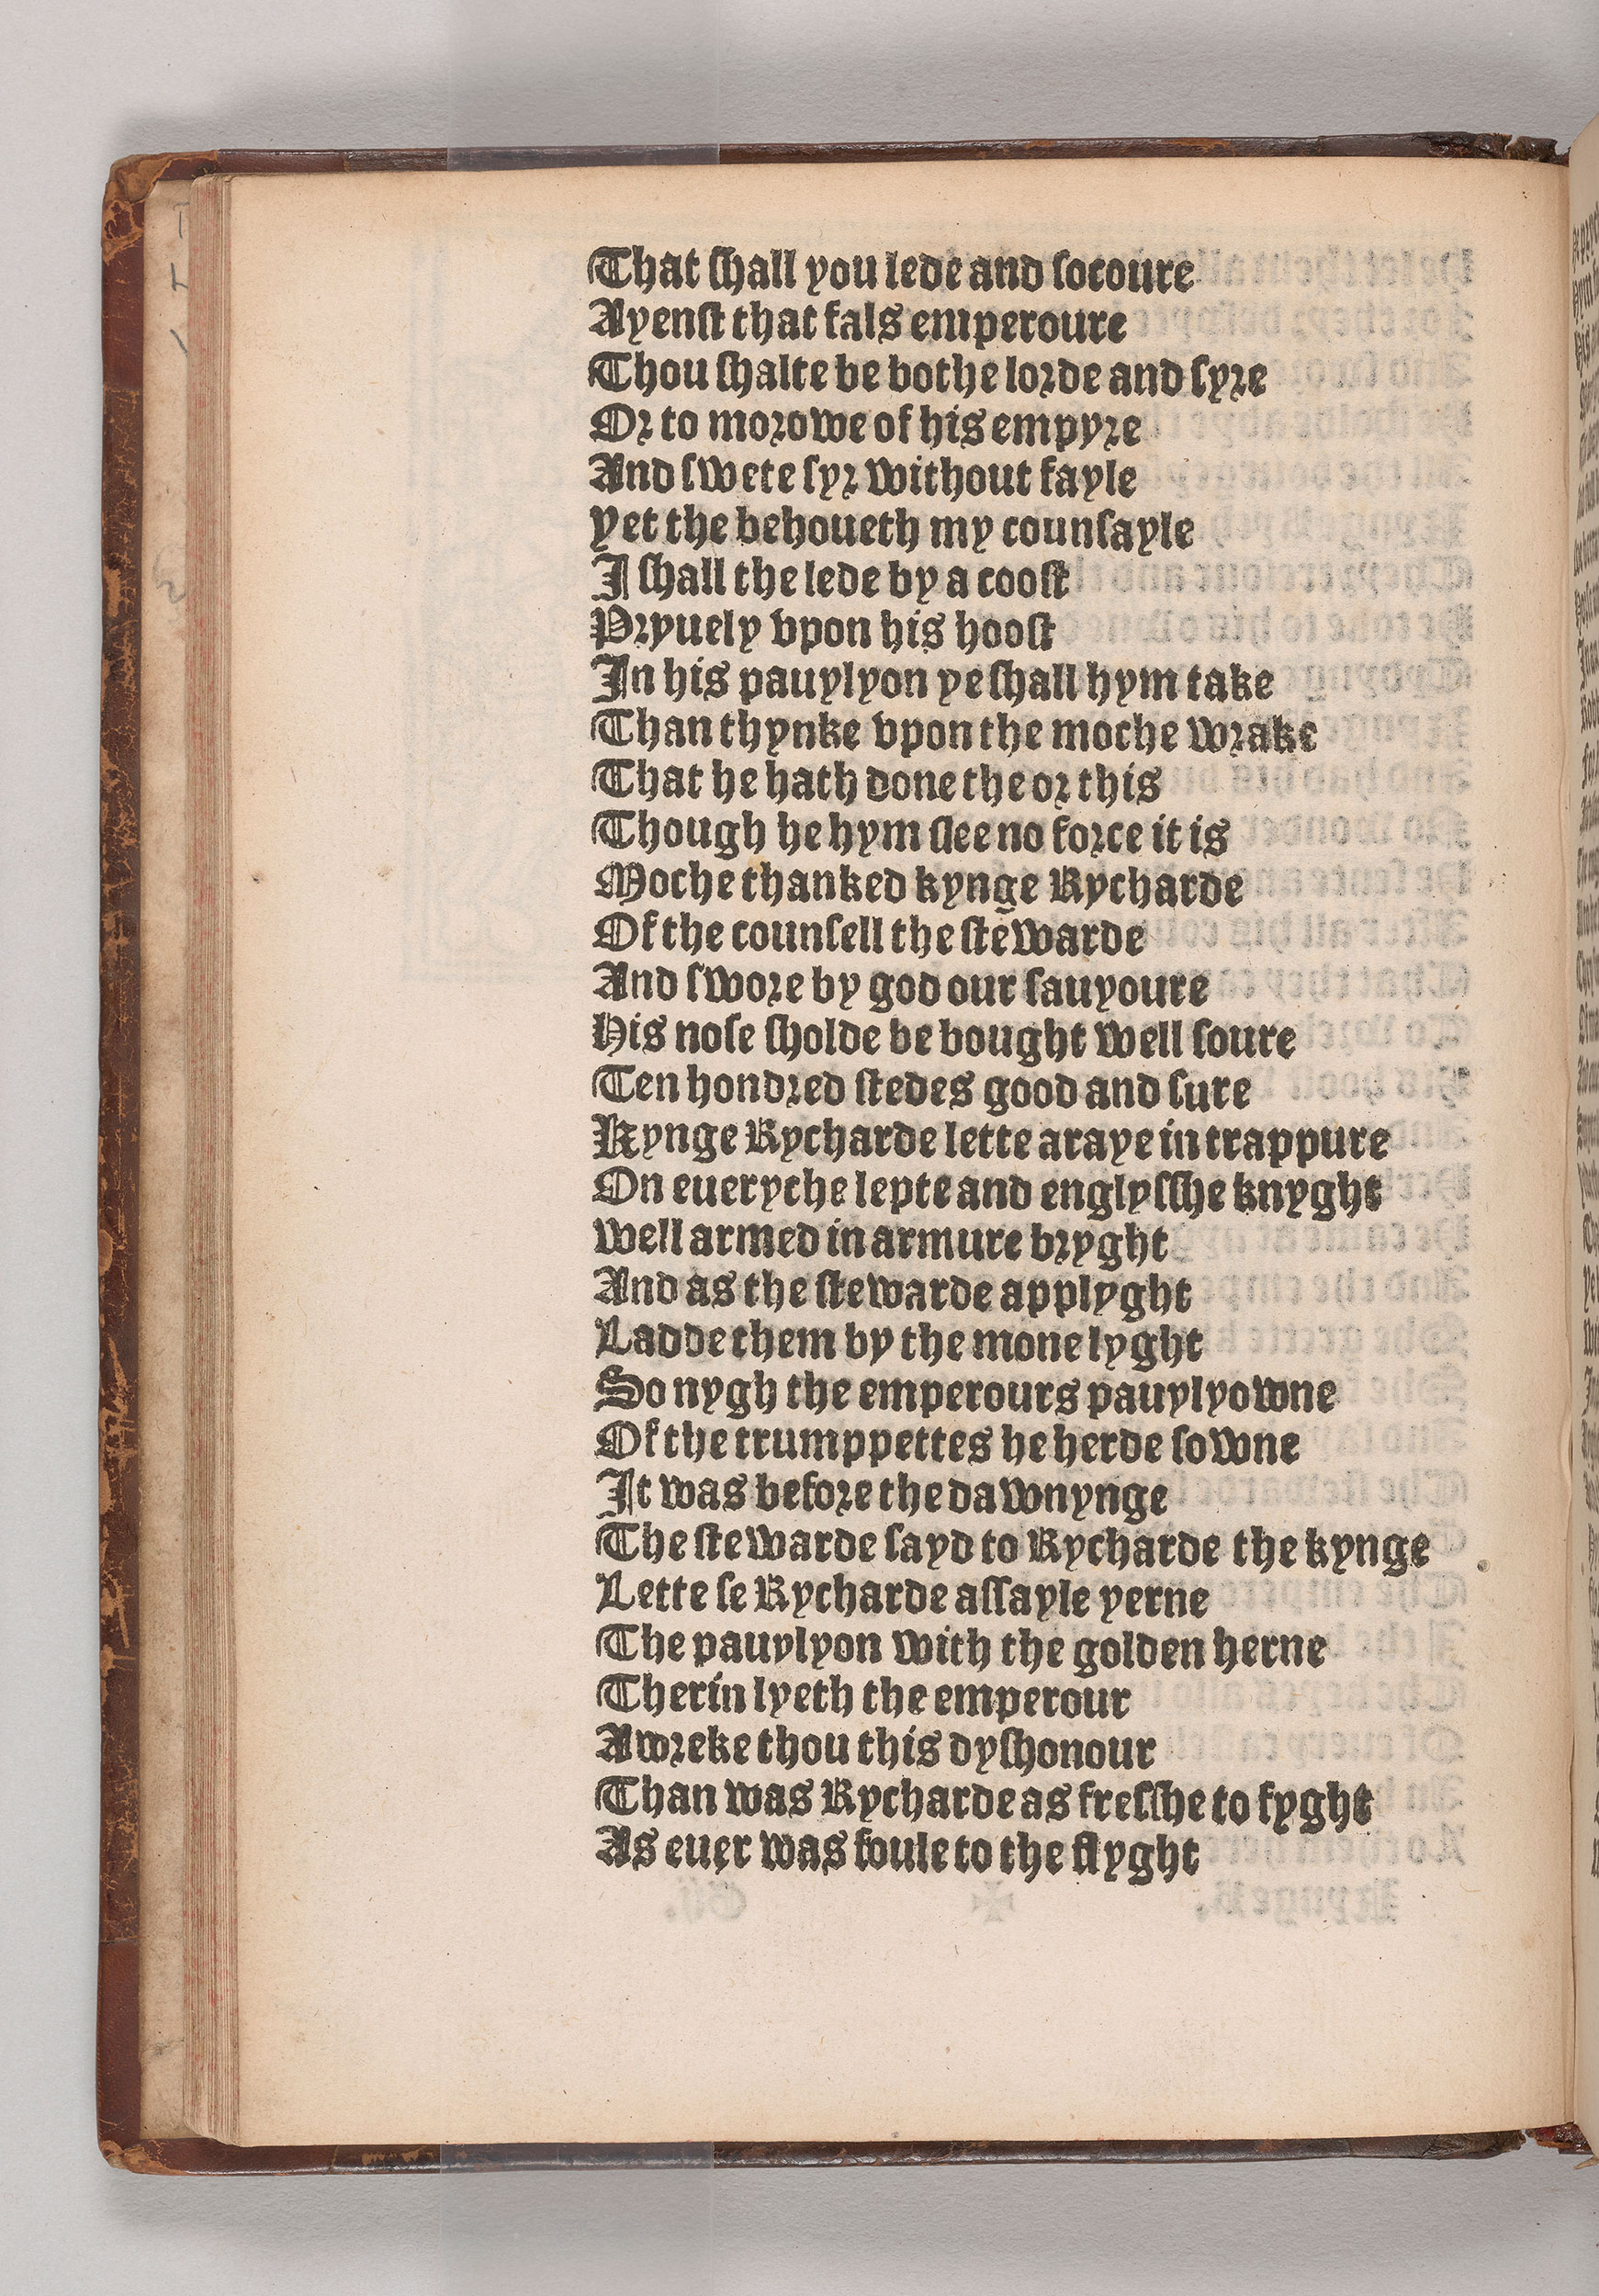 That shall you lede and socoure
Ayenst that fals emperoure
Thou shalte be bothe lorde and syre
Or to morowe of his empyre
And swete syr without fayle
yet the behoueth my counsayle
I shall the lede by a coost
Pryuely vpon his hoost
In his pauylyon ye shall hym take
Than thynke vpon the moche wrake
That he hath done the or this
Though he hym slee no force it is
Moche thanked kynge Rycharde
Of the counsell the stewarde
And swore by god our sauyoure
His nose sholde be bought well soure
Ten hondred stedes good and sure
Kynge Rycharde lette araye in trappure
On eueryche lepte and englysshe knyght
well armed in armure bryght
And as the stewarde applyght
Ladde them by the mone lyght
So nygh the emperours pauylyowne
Of the trumppettes he herde sowne
It was before the dawnynge
The stewarde sayd to Rycharde the kynge
Lette se Rycharde assayle yerne
The pauylyon with the golden herne
Therin lyeth the emperour
Awreke thou this dyshonour
Than was Rycharde as fresshe to fyght
As euer was foule to the flyght